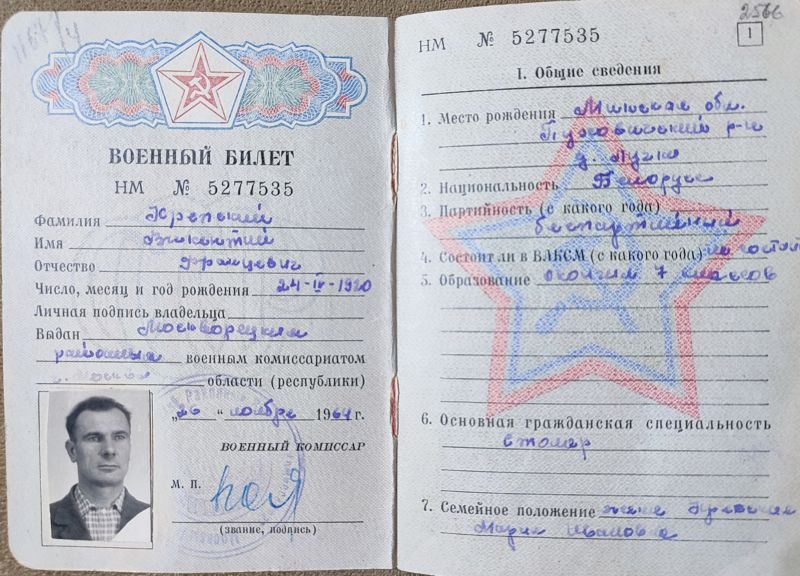 1167/4
ВОЕННЫЙ БИЛЕТ
НМ № 5277535
Фамилия
Имя Викентий
Отчество Францевич
Число, месяц и год рождения 24-IV-1920
Личная подпись владельца
Выдан Москворецким
районным военным комиссариатом
г. Москвы области (республики)
„26“ ноября 1964 г.
ВОЕННЫЙ КОМИССАР
М. П.
(звание, подпись)
2566
НМ № 5277535
1
I. Общие сведения
1. Место рождения Минская обл.
р-н
д.
2. Национальность Белорус
3. Партийность (с какого года)
беспартийный
4. Состоит ли в ВЛКСМ (с какого года) не состоит
5. Образование окончил 7 классов
6. Основная гражданская специальность
столяр
7. Семейное положение жена
Мария Ивановна